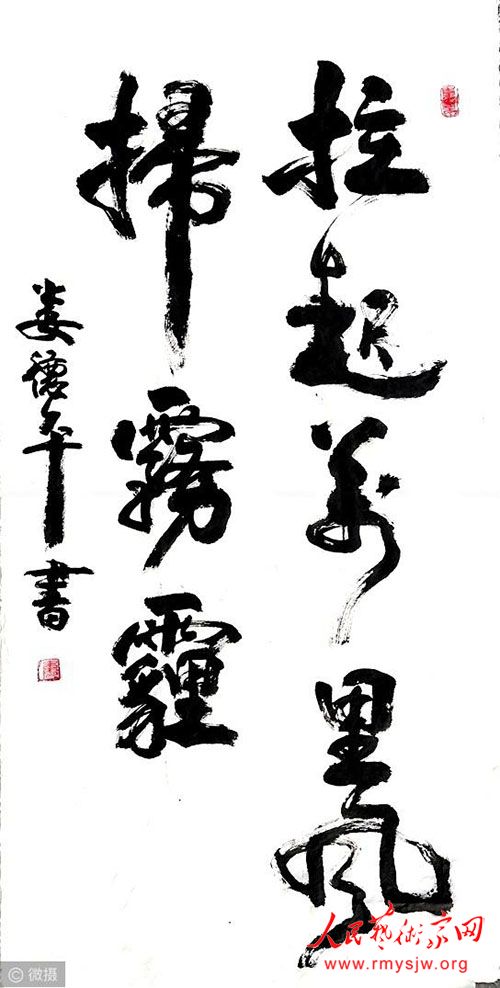 拉起万里风
掃霧霾
娄德平書
人民艺術家网
www.rmysjw.org
© 微摄